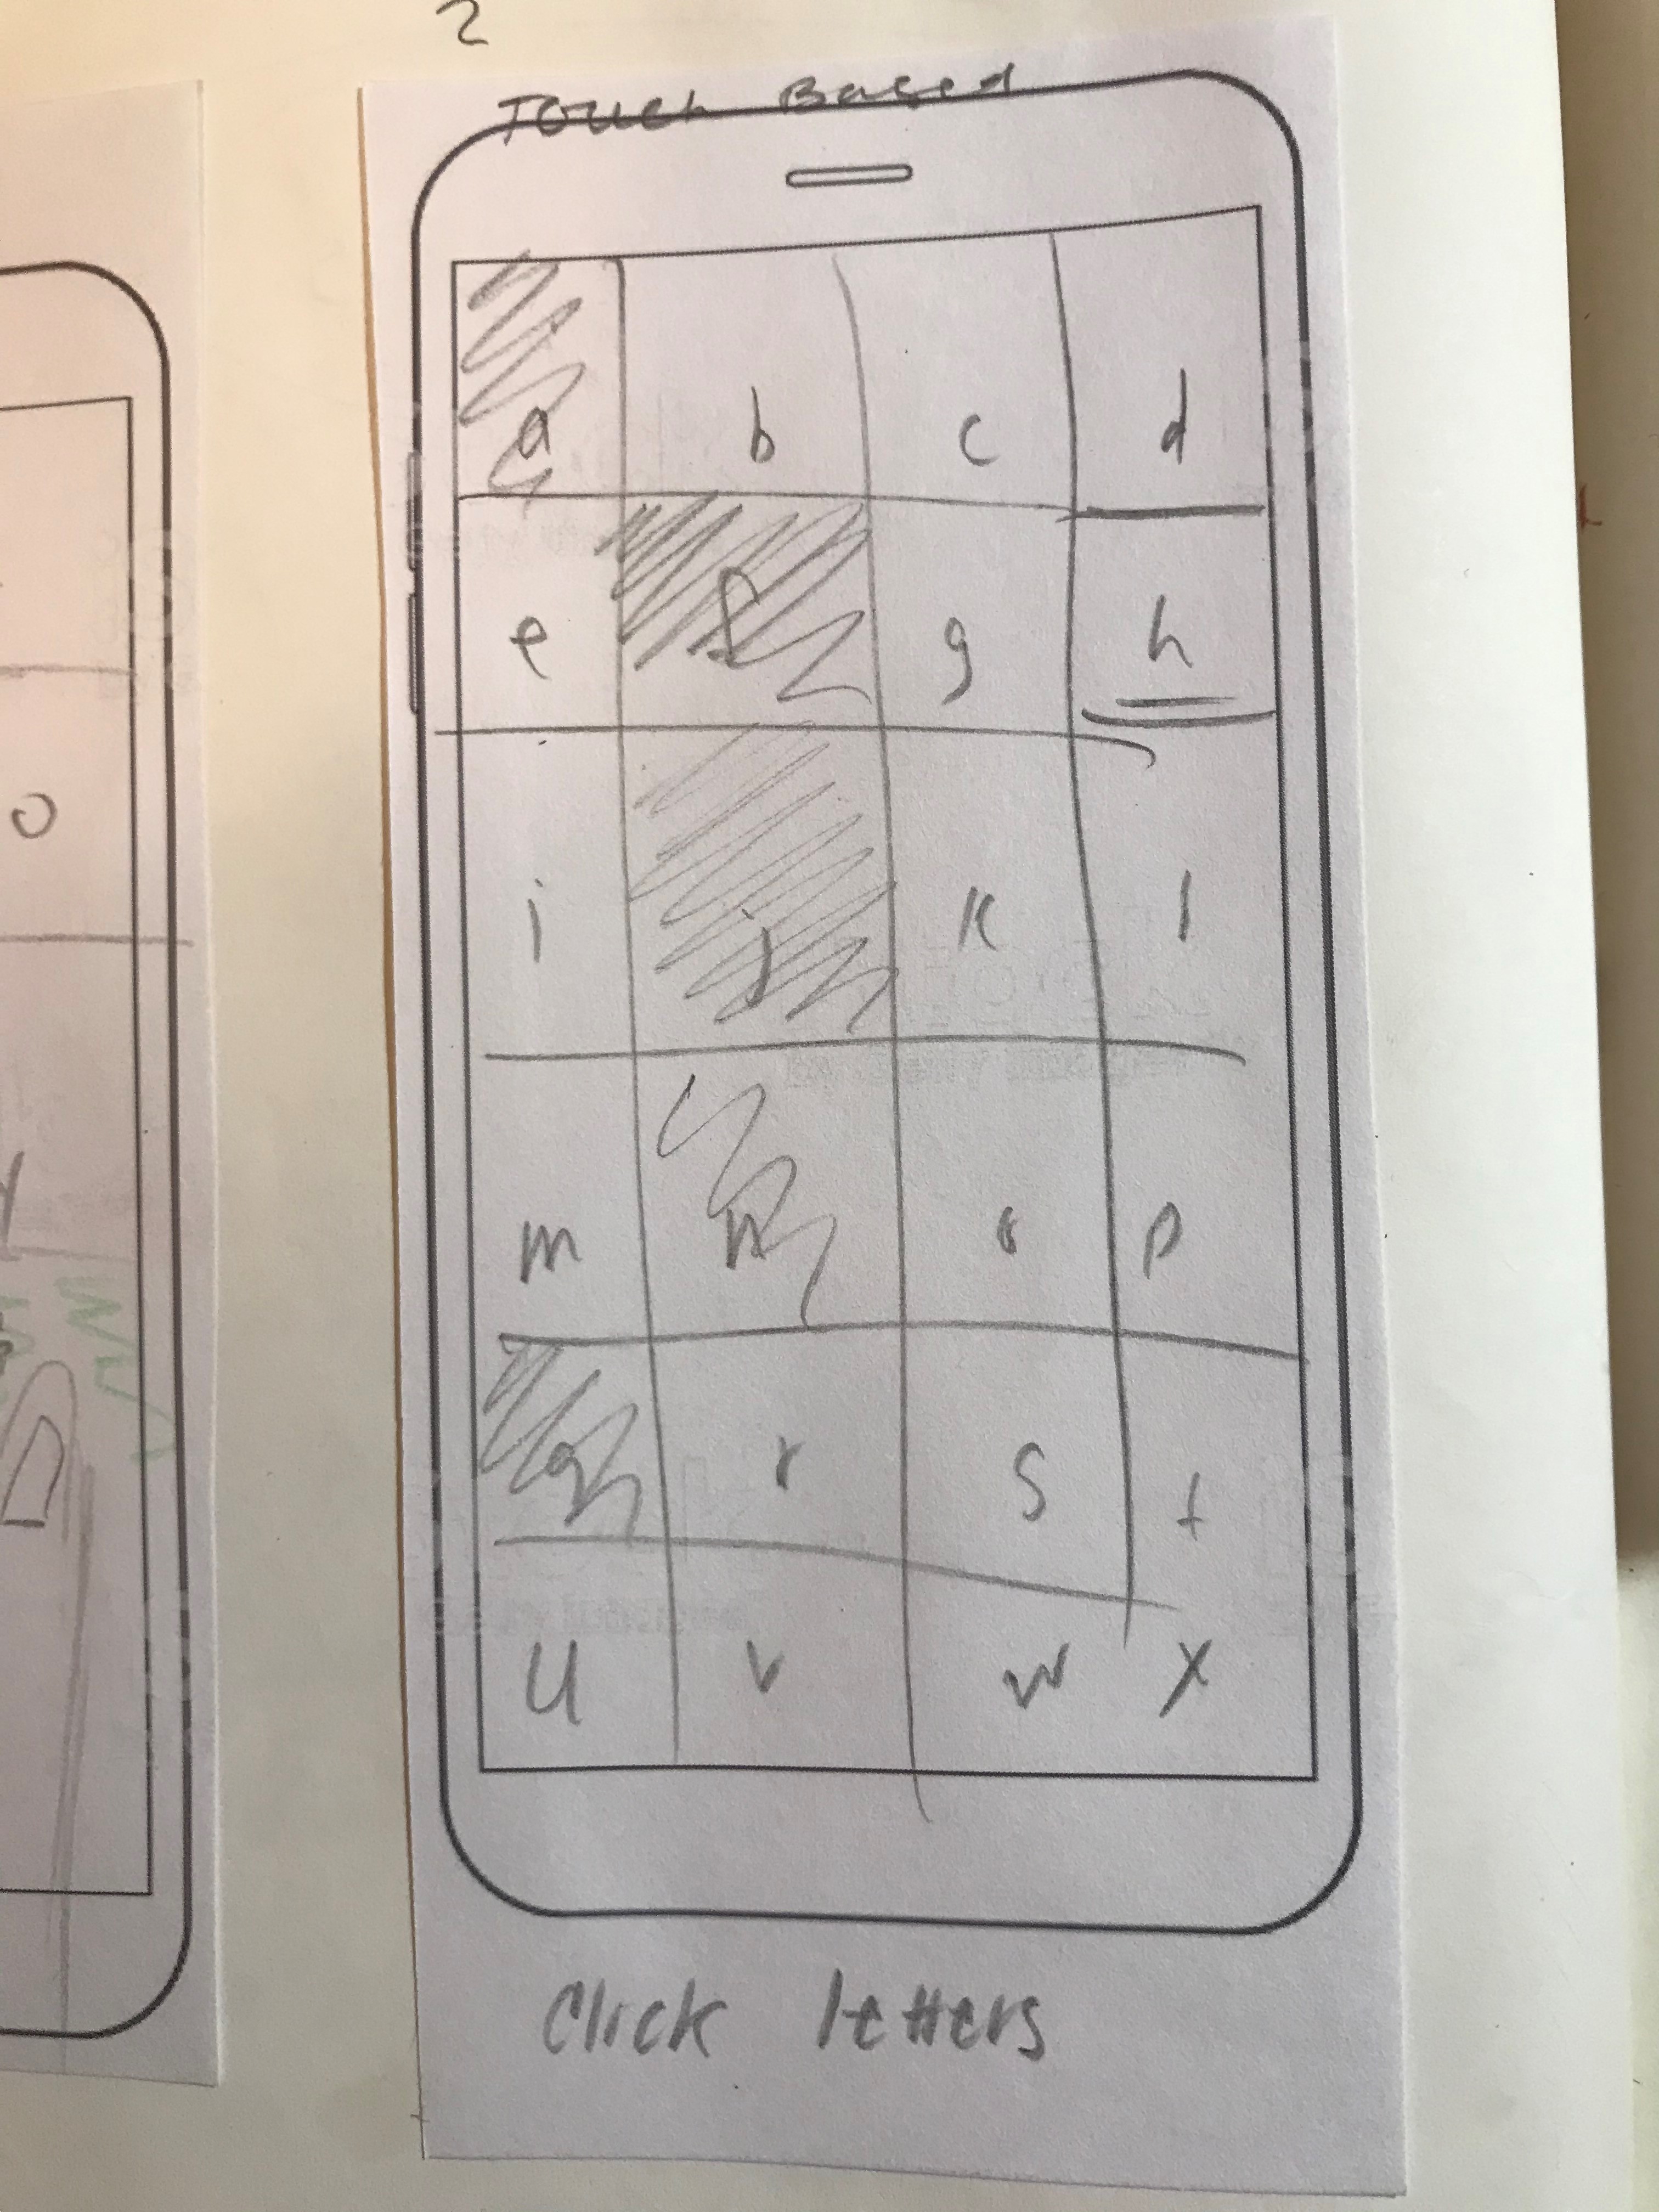 2
Touch Based
a b c d
e f g h
i j k l
m n o p
q r s t
u v w x
Click letters
o